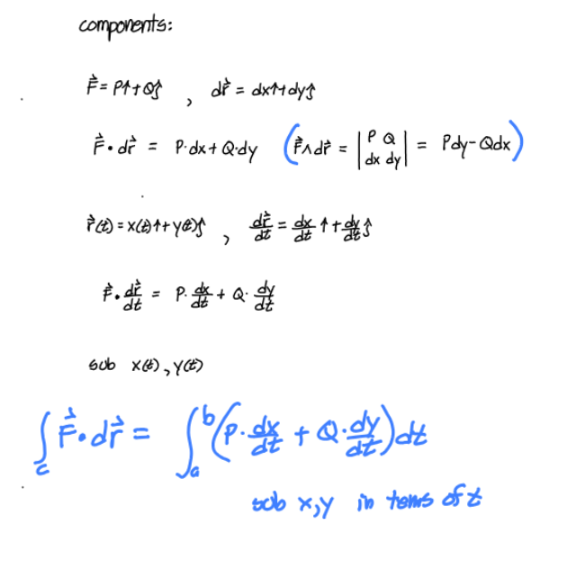 components:
F⃗ = Pî + Qĵ , dr⃗ = dxî + dyĵ
F⃗ • dr⃗ = P·dx + Q·dy (F⃗ ∧ dr⃗ = |P Q; dx dy| = Pdy - Qdx)
r⃗(t) = x(t)î + y(t)ĵ , dr⃗/dt = dx/dt î + dy/dt ĵ
F⃗ • dr⃗/dt = P· dx/dt + Q· dy/dt
sub x(t), y(t)
∫_c F⃗ • dr⃗ = ∫_a^b (P· dx/dt + Q· dy/dt) dt
sub x,y in terms of t